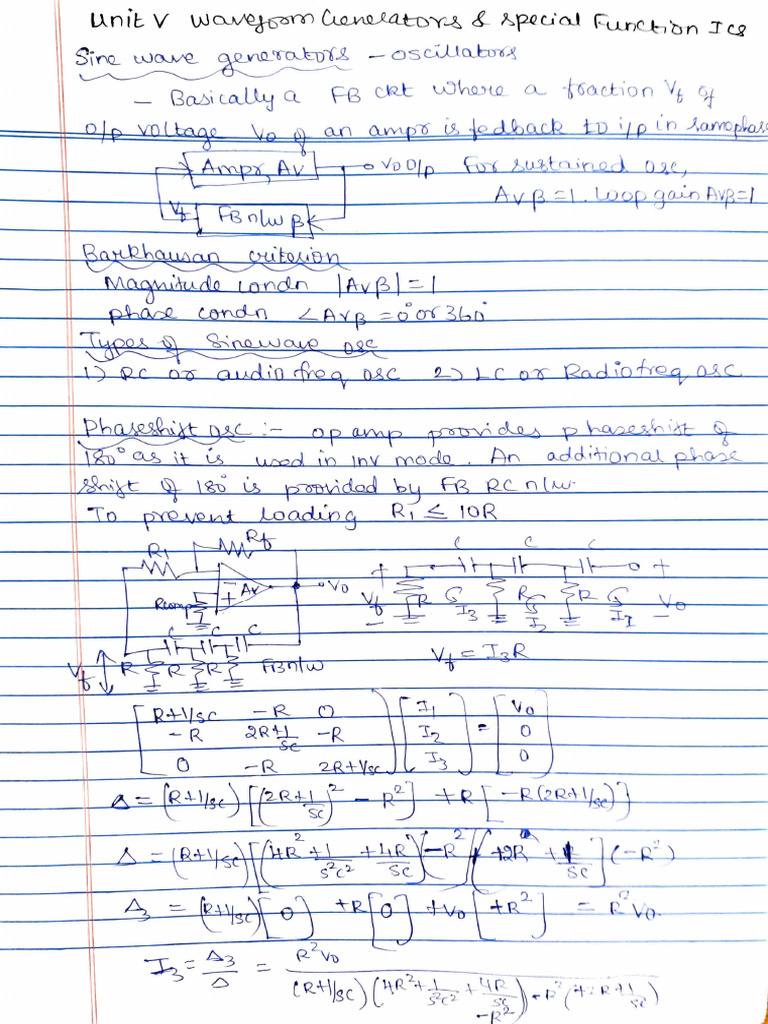 Unit V Waveform Generators & Special Function ICs
Sine wave generators - oscillators
- Basically a FB ckt where a fraction Vf of
o/p voltage Vo of an ampr is fedback to i/p in samephase
Ampr, Av
Vo o/p
For sustained osc,
Avβ=1. Loop gain Avβ=1
Vf
FB n/w β
Barkhausan criterion
Magnitude condn |Avβ|=1
phase condn ∠Avβ = 0° or 360°
Types of Sinewave osc
1) RC or audio freq osc 2) LC or Radio freq osc
Phaseshift osc :- op amp provides phaseshift of
180° as it is used in inv mode. An additional phase
shift of 180° is provided by FB RC n/w.
To prevent loading R1 ≤ 10R
R1 Rf
Av
Vo
Rcomp
C C C
Vf R R R FB n/w
C C C
+ +
Vf R I3 R I2 R I1 Vo
- -
Vf = I3R
[R+1/sc -R 0] [I1] = [Vo]
[-R 2R+1/sc -R] [I2] [0]
[0 -R 2R+1/sc] [I3] [0]
Δ = (R+1/sc) [(2R+1/sc)² - R²] + R [-R(2R+1/sc)]
Δ = (R+1/sc) [(4R²+1/s²c² + 4R/sc) - R²] (+2R + 1/sc] (-R²)
Δ3 = (R+1/sc) [0] + R [0] + Vo [+R²] = R²Vo.
I3 = Δ3/Δ = R²Vo / (R+1/sc) (4R²+1/s²c² + 4R/sc - R²) - R² (+2R+1/sc)